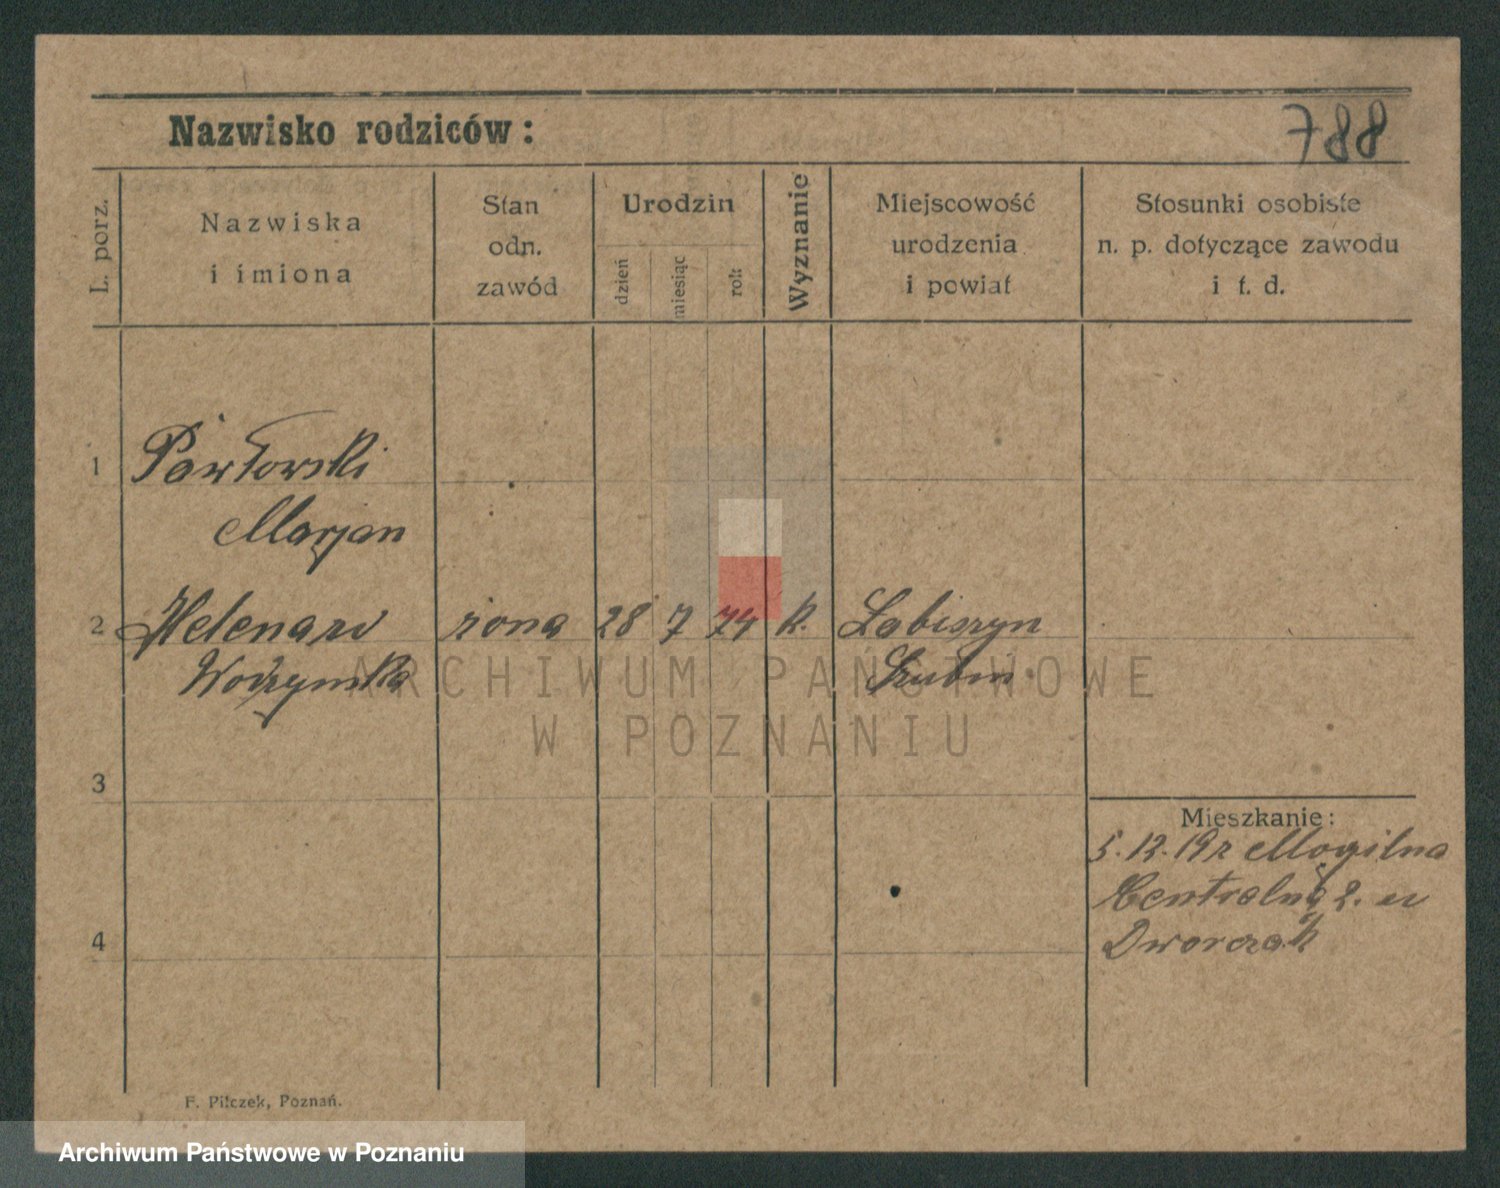 Nazwisko rodziców:
788
L. porz.
Nazwiska
i imiona
Stan
odn.
zawód
Urodzin
dzień
miesiąc
rok
Wyznanie
Miejscowość
urodzenia
i powiat
Stosunki osobiste
n. p. dotyczące zawodu
i t. d.
1 Pawłowski
Marjan
2 Helena żona 28 7 74 k. Łabiszyn
Szubin
ARCHIWUM PAŃSTWOWE
W POZNANIU
3
Mieszkanie:
5.12.19 r Mogilna
Centralna 2. u
Dworczak
4
F. Pilczek, Poznań.
Archiwum Państwowe w Poznaniu